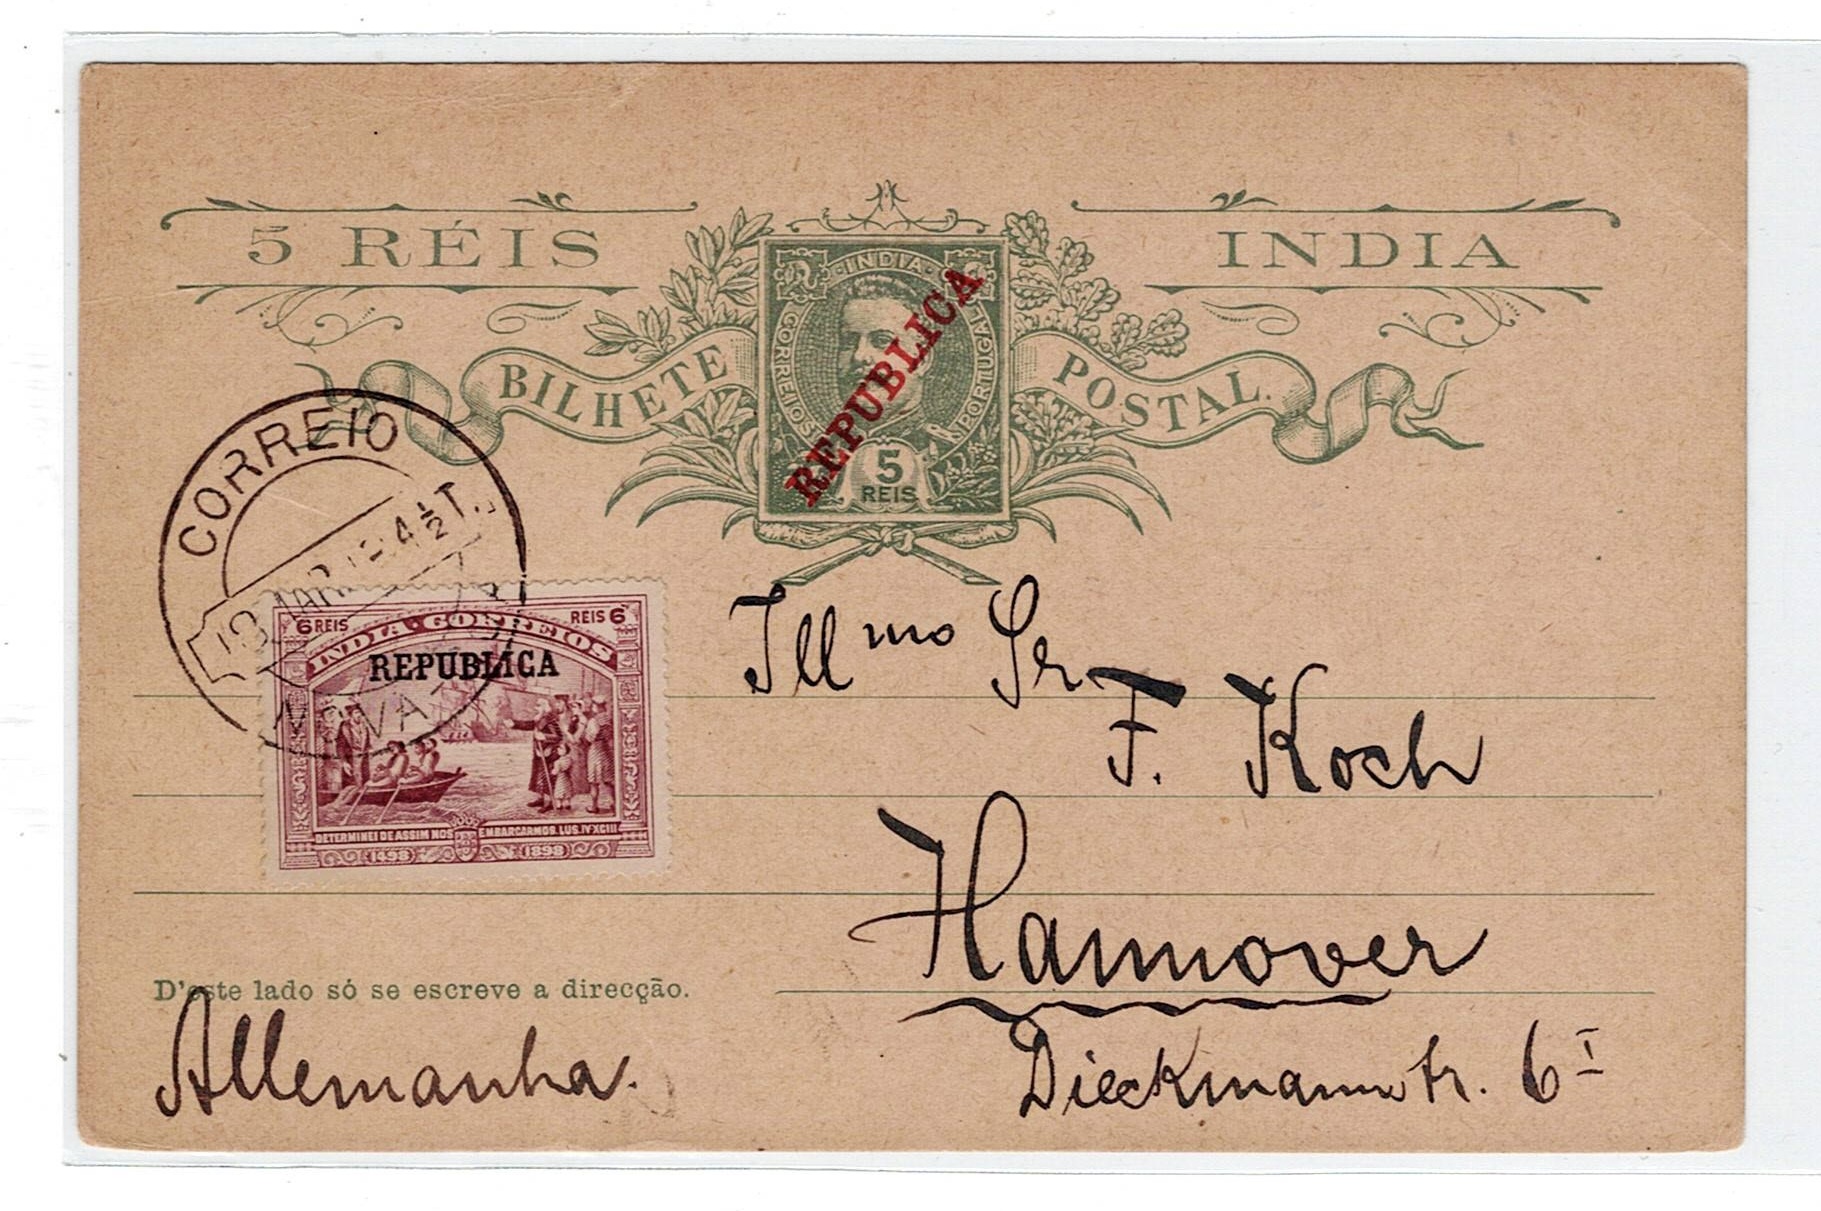 5 RÉIS
INDIA
BILHETE POSTAL.
INDIA
CORREIOS
PORTUGAL
5
REIS
REPUBLICA
CORREIO
4½T.
NOVA
6 REIS
REIS 6
INDIA · CORREIOS
REPUBLICA
DETERMINEI DE ASSIM NOS EMBARCARMOS. LUS. IV-XCIII
1498 1898
Illmo Sr
F. Koch
Hannover
D'este lado só se escreve a direcção.
Allemanha.
Dieckmannstr. 6I